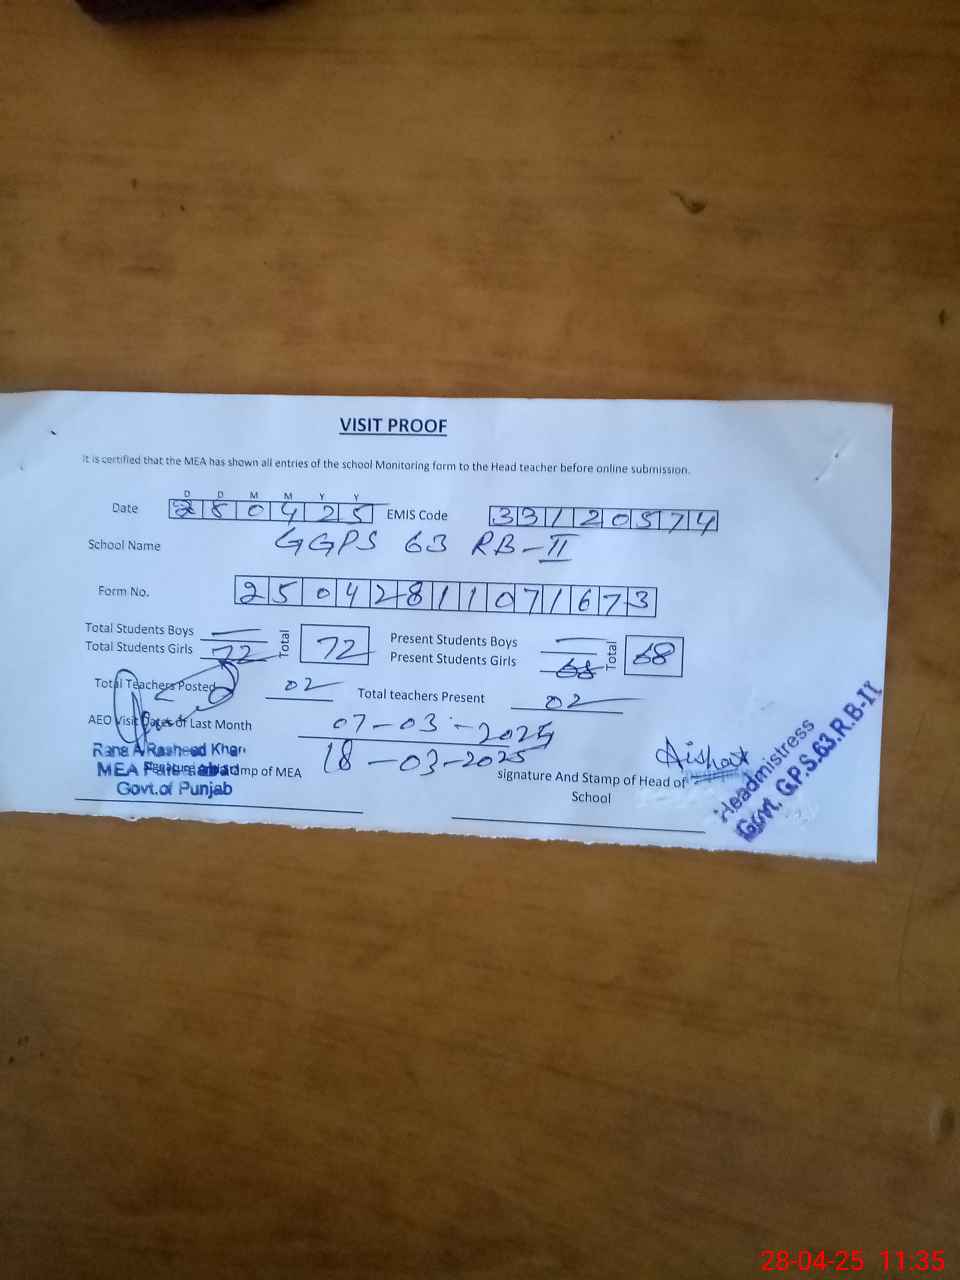 VISIT PROOF
It is certified that the MEA has shown all entries of the school Monitoring form to the Head teacher before online submission.
D D M M Y Y
Date 280425 EMIS Code 33120574
School Name GGPS 63 RB-II
Form No. 25042811071673
Total Students Boys — Total 72 Present Students Boys — Total 68
Total Students Girls 72 Present Students Girls 68
Total Teachers Posted 02 Total teachers Present 02
AEO Visit Dates of Last Month 07-03-2025
18-03-2025
Rana A Rasheed Khan
MEA Faisalabad
Govt.of Punjab
Signature and Stamp of MEA
Aisha
signature And Stamp of Head of
School
Headmistress
Govt. G.P.S.63.R.B-II
28-04-25 11:35